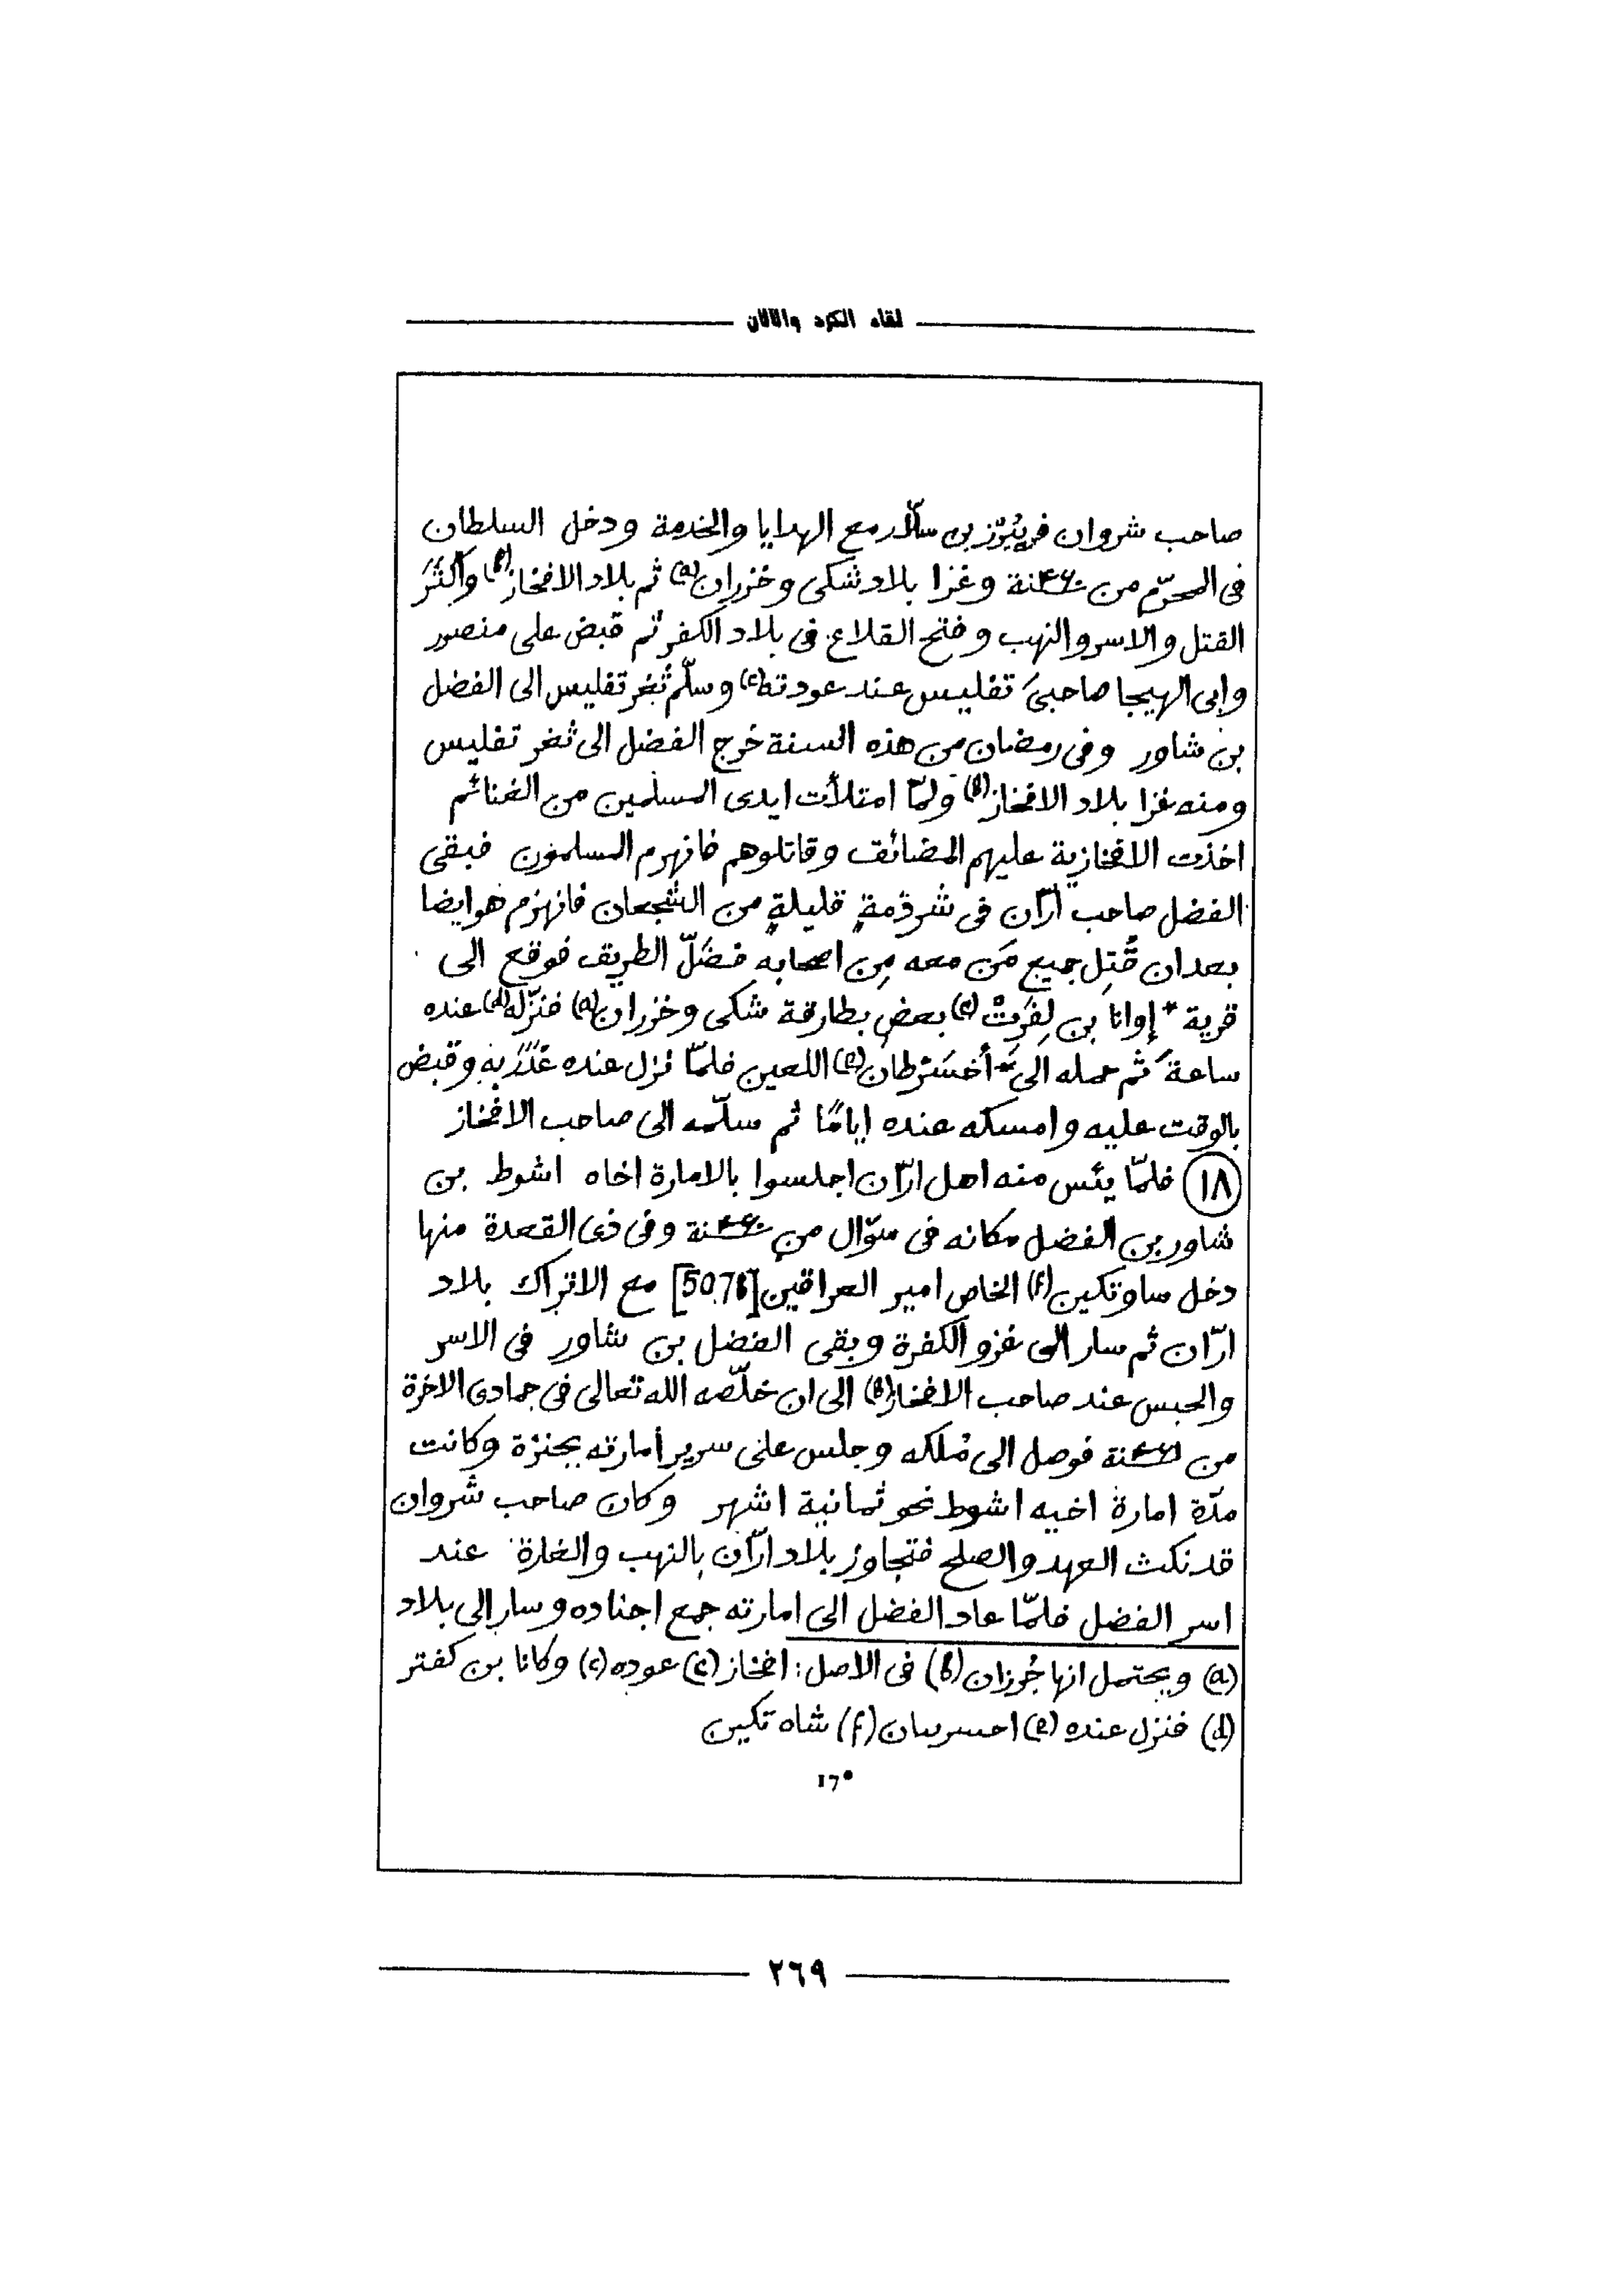 لقاء الكرد واللان
صاحب شروان فريبُرّز بن سلّار مع الهدايا والخدمة ودخل السلطان
فى المحرّم من ۴۶۰سنة وغزا بلاد شكى وخزران(a) ثم بلاد الافخاز(b) واَكثَرَ
القتل والاسر والنهب وفتح القلاع فى بلاد الكفر ثم قبض على منصور
وابى الهيجا صاحبىَ تفليس عند عودته(c) وسلّم ثغر تفليس الى الفضل
بن شاور وفى رمضان من هذه السنة خرج الفضل الى ثغر تفليس
ومنه غزا بلاد الافخاز(b) ولمّا امتلأت ايدى المسلمين من الغنائم
اخذت الافخازية عليهم المضائق وقاتلوهم فانهزم المسلمون فبقى
الفضل صاحب ارّان فى شرذمةٍ قليلةٍ من الشجعان فانهزم هو ايضا
بعد ان قُتِل جميع مَن معه مِن اصحابه فضَلّ الطريق فوقع الى
قرية * إوانا بن لِفَرِتْ(c) بعض بطارقة شكى وخزران(a) فنزّله(d) عنده
ساعةً ثم حمله الى * أخسَرْطان(e) اللعين فلمّا نزل عنده غَدَرَ بهِ وقبض
بالوقت عليه وامسكه عنده ايامًا ثم سلّمه الى صاحب الافخاز
(١٨) فلمّا يئس منه اهل ارّان اجلسوا بالامارة اخاه اشوط بن
شاور بن الفضل مكانه فى شوّال من ۴۶۰سنة وفى ذى القعدة منها
دخل ساوتكين(f) الخاص امير العراقين [507b] مع الاتراك بلاد
ارّان ثم سار الى غزو الكفرة وبقى الفضل بن شاور فى الاسر
والحبس عند صاحب الافخاز(b) الى ان خلّصه الله تعالى فى جمادى الاخرة
من ۴۶۱سنة فوصل الى مُلكه وجلس على سرير امارته بجنزة وكانت
مدّة امارة اخيه اشوط نحو ثمانية اشهر وكان صاحب شروان
قد نكث العهد والصلح فتجاوز بلاد ارّان بالنهب والغارة عند
اسر الفضل فلمّا عاد الفضل الى امارته جمع اجناده وسار الى بلاد
(a) ويحتمل انها جُرزان (b) فى الاصل: افخاز (c) عوده (c) وكانا بن كفتر
(d) فنزل عنده (e) احسرسان (f) شاه تكين
17*
٢٦٩